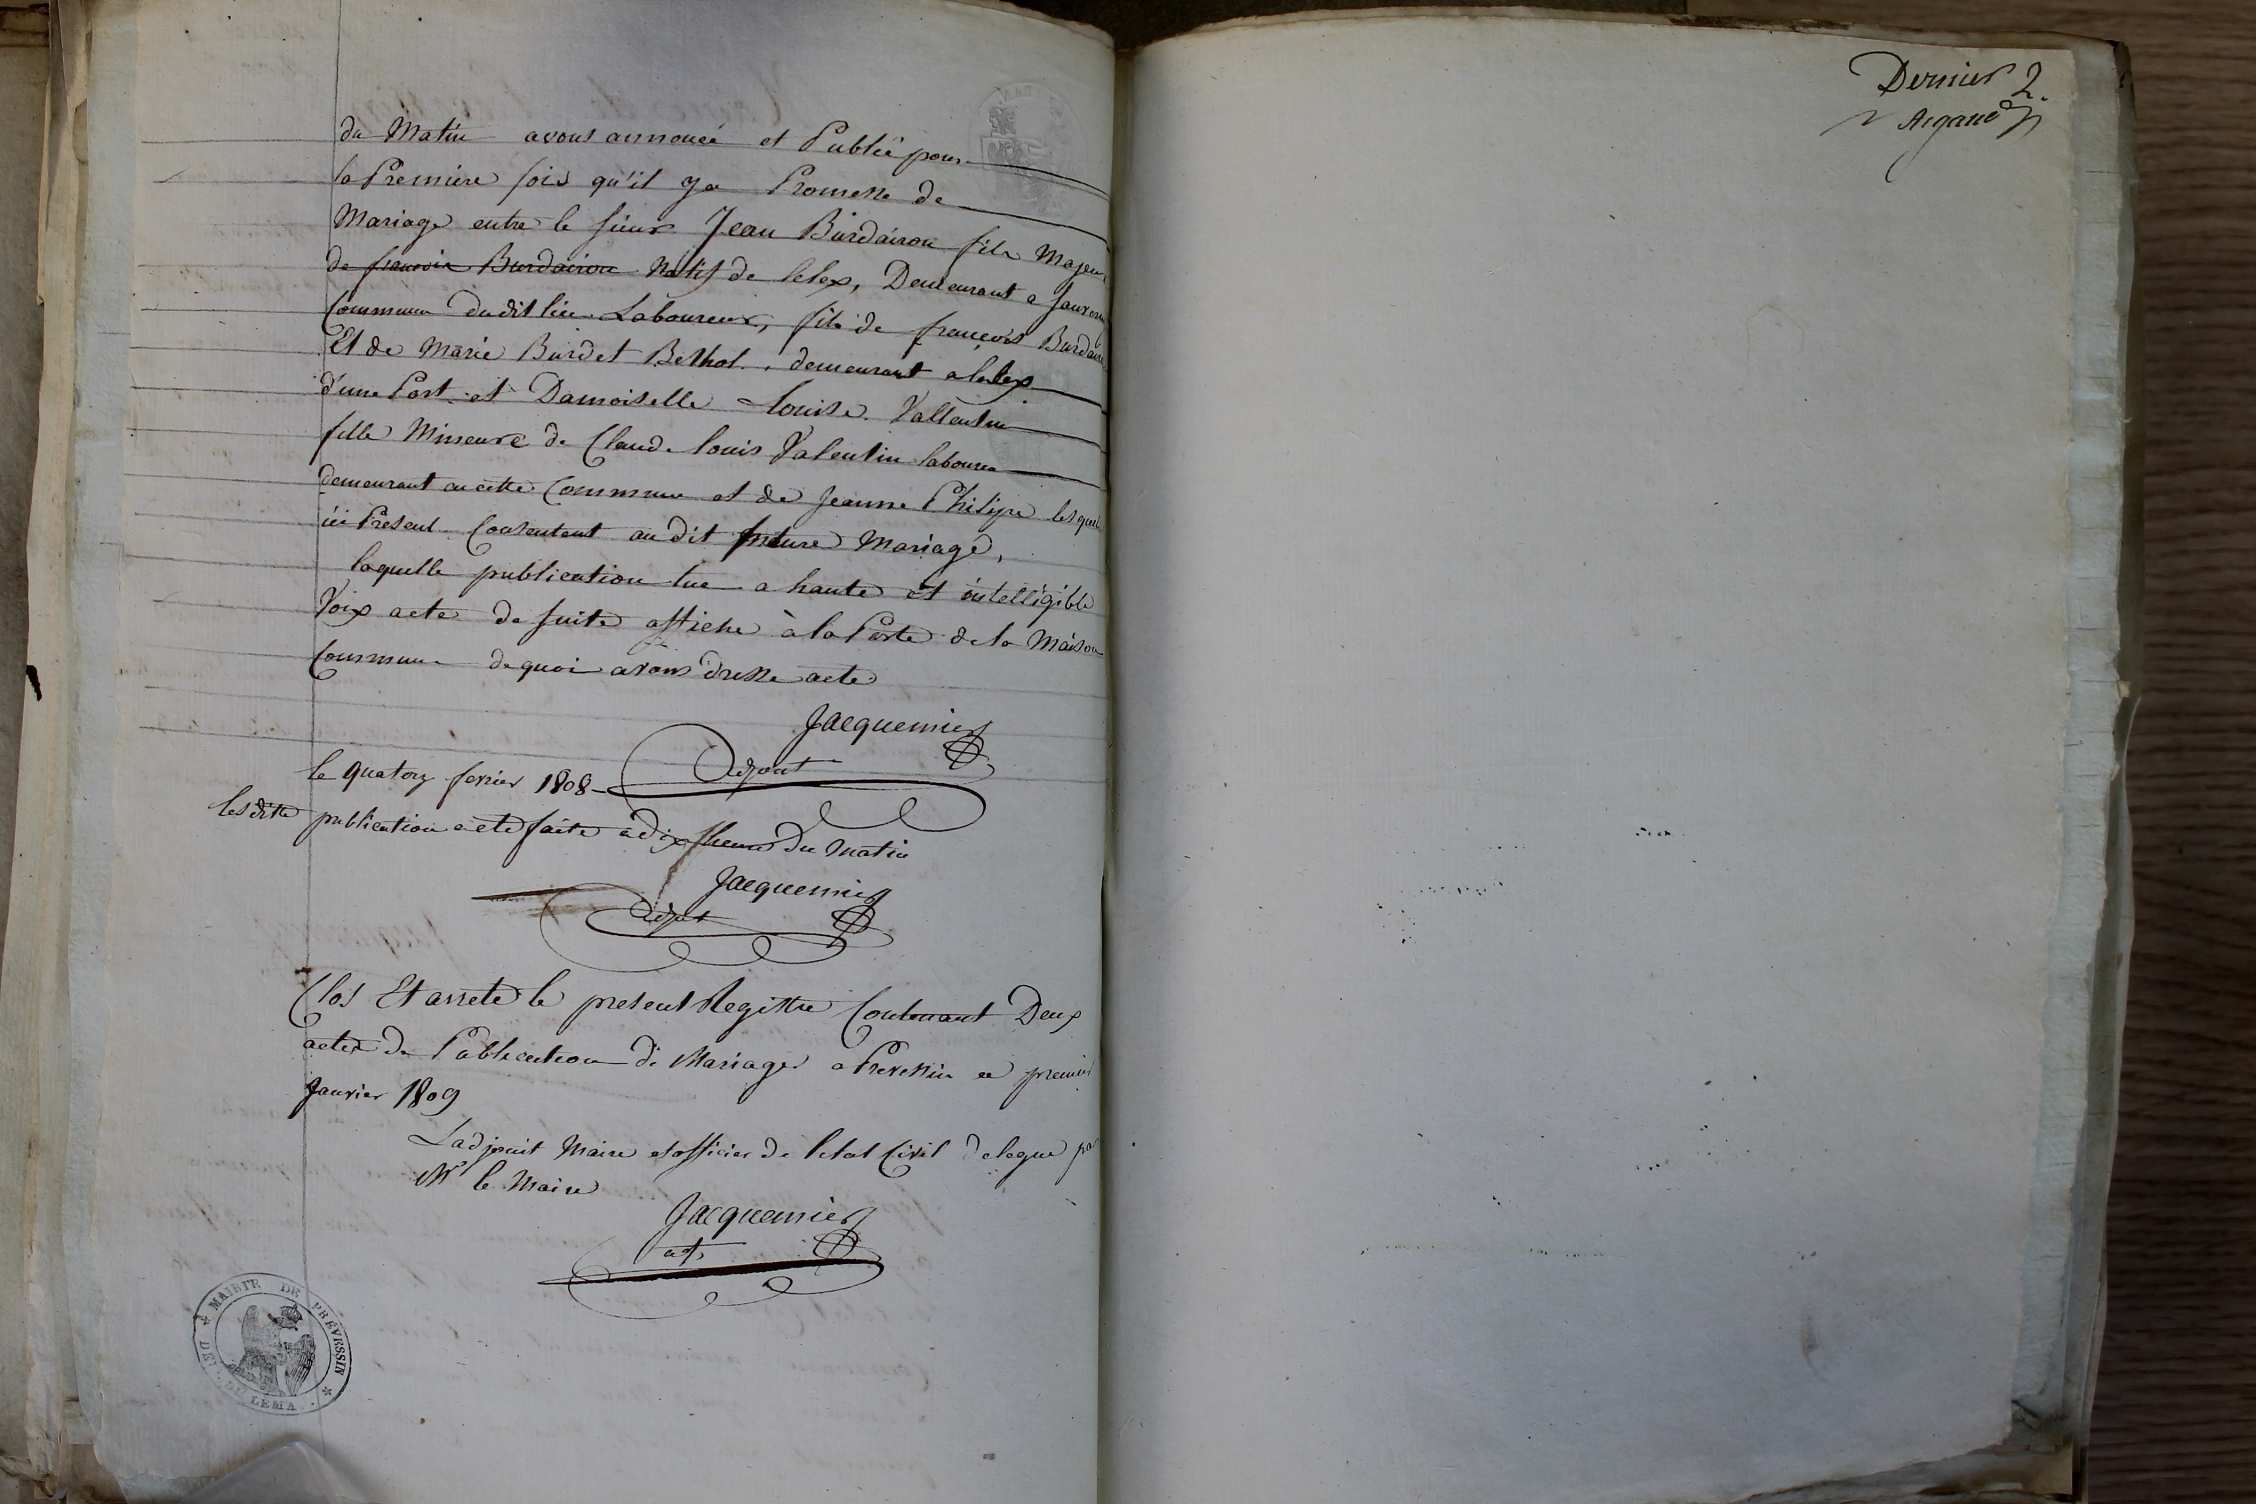 du Matin avons annoncé et Publié pour
la Premiere fois qu'il ya Promesse de
Mariage entre le sieur Jean Burdairon fils Majeur
de francois Burdairon Natif de lelex, Demeurant a
Commune dudit lieu Laboureur, fils de françois Burdairon
Et de Marie Burdet Bethol, demeurant a lelex
d'une Part et Damoiselle Louise Vallentin
fille Mineure de Claude louis Valentin laboureur
demeurant en cette Commune et de Jeanne Philipe lesquels
ici Present Consentent au dit future Mariage,
laquelle publication lue a haute et intelligible
Voix acte de suite affiche à la Porte de la Maison
Commune de quoi avons dresse acte
Jacquemier
Adjoint
le quatorz fevrier 1808
lesditte publication a ete faite a dix heures du matin
Jacquemier
Adjt
Clos Et arrete le present Registre Contenant Deux
actes de Publication de Mariage a Prevessin ce premier
Janvier 1809
L'adjoint Maire et officier de l'etat Civil delegue par
Mr le Maire
Jacquemier
adj
MAIRIE DE PRÉVESSIN
DEP. DU LEMAN
Dernier 2.
Argand